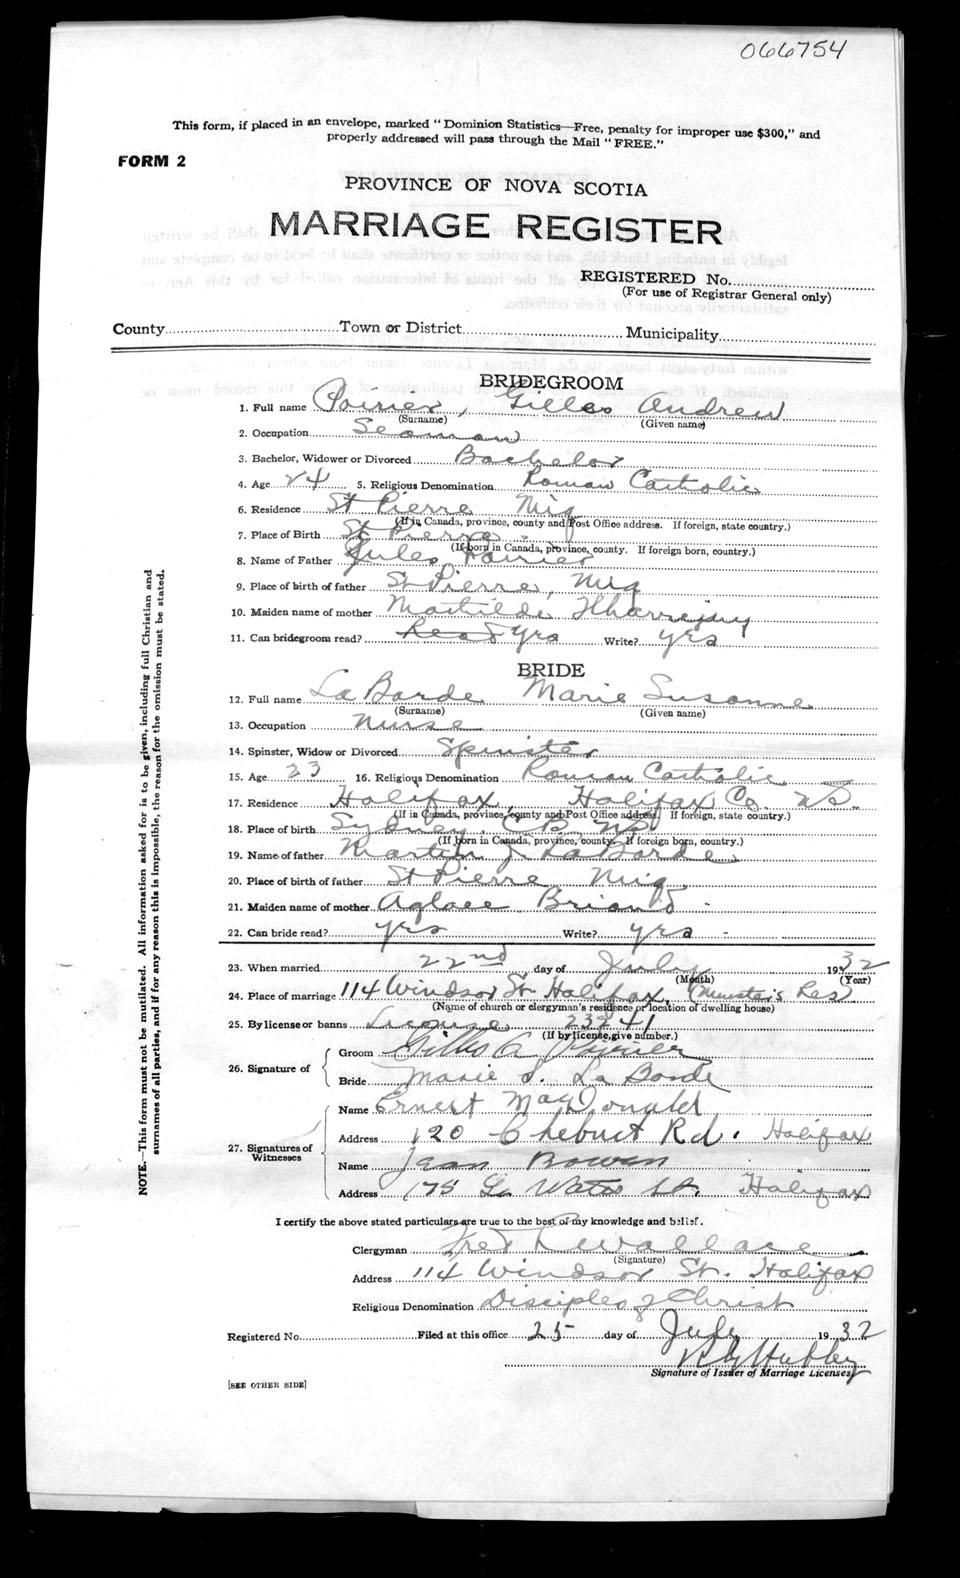 066754
This form, if placed in an envelope, marked "Dominion Statistics—Free, penalty for improper use $300," and
properly addressed will pass through the Mail "FREE."
FORM 2
PROVINCE OF NOVA SCOTIA
MARRIAGE REGISTER
REGISTERED No.
(For use of Registrar General only)
County Town or District Municipality
BRIDEGROOM
1. Full name Poirier, Gilles Andrew
(Surname) (Given name)
2. Occupation Seaman
3. Bachelor, Widower or Divorced Bachelor
4. Age 24 5. Religious Denomination Roman Catholic
6. Residence St Pierre Miq
(If in Canada, province, county and Post Office address. If foreign, state country.)
7. Place of Birth St Pierre
(If born in Canada, province, county. If foreign born, country.)
8. Name of Father Jules Poirier
9. Place of birth of father St Pierre, Miq
10. Maiden name of mother Matilde
11. Can bridegroom read? Read Yrs Write? yrs
BRIDE
12. Full name La Borde Marie Susanne
(Surname) (Given name)
13. Occupation Nurse
14. Spinster, Widow or Divorced Spinster
15. Age 23 16. Religious Denomination Roman Catholic
17. Residence Halifax, Halifax Co. NS.
(If in Canada, province, county and Post Office address. If foreign, state country.)
18. Place of birth Sydney, C.B. NS
(If born in Canada, province, county. If foreign born, country.)
19. Name of father Martin J LaBorde
20. Place of birth of father St Pierre Miq
21. Maiden name of mother Aglaee Briand
22. Can bride read? yrs Write? yrs
23. When married 22nd day of July 1932
(Month) (Year)
24. Place of marriage 114 Windsor St. Halifax, (Minister's Res)
(Name of church or clergyman's residence or location of dwelling house)
25. By license or banns License 23241
(If by license, give number.)
26. Signature of
Groom Gilles A Poirier
Bride Marie S. La Borde
27. Signatures of Witnesses
Name Ernest MacDonald
Address 120 Chebuct Rd. Halifax
Name Jean Bowen
Address 175 Lr Water St. Halifax
I certify the above stated particulars are true to the best of my knowledge and belief.
Clergyman Fred Wallace
(Signature)
Address 114 Windsor St. Halifax
Religious Denomination Disciples of Christ
Registered No. Filed at this office 25 day of July 1932
Hubley
Signature of Issuer of Marriage Licenses
[SEE OTHER SIDE]
NOTE.—This form must not be mutilated. All information asked for is to be given, including full Christian and
surnames of all parties, and if for any reason this is impossible, the reason for the omission must be stated.